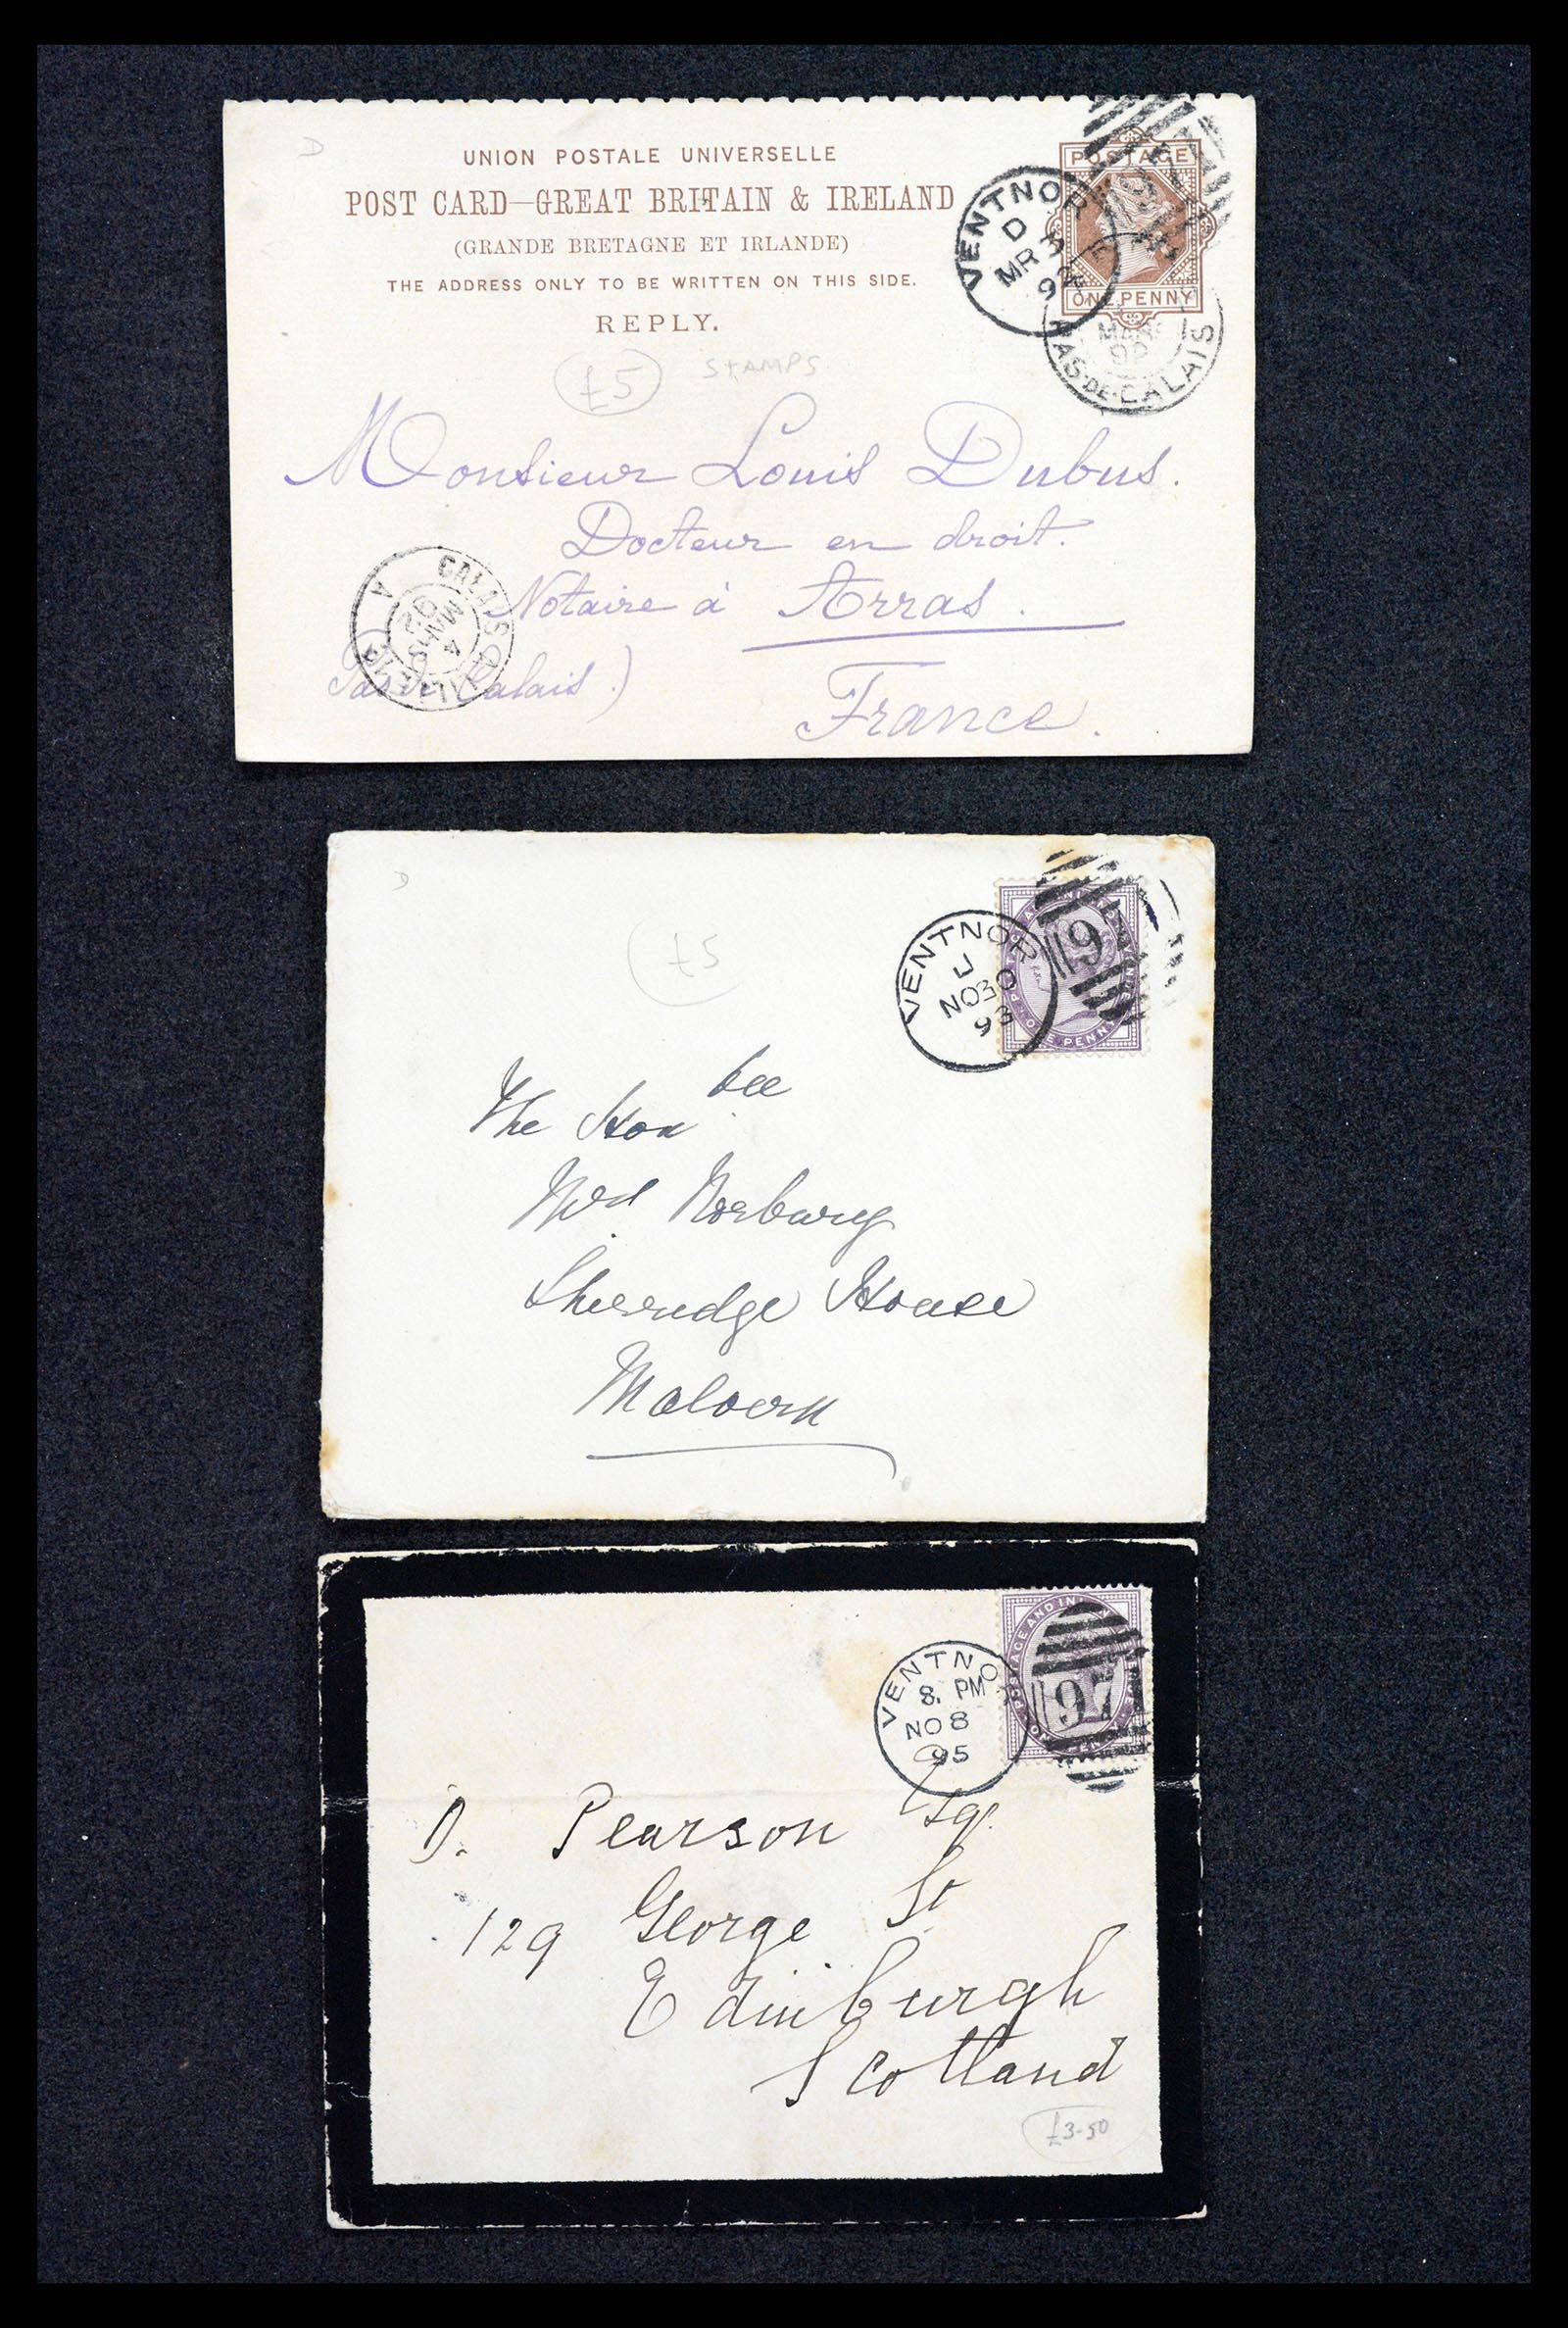 D
UNION POSTALE UNIVERSELLE
POST CARD—GREAT BRITAIN & IRELAND
(GRANDE BRETAGNE ET IRLANDE)
THE ADDRESS ONLY TO BE WRITTEN ON THIS SIDE.
REPLY.
POSTAGE
ONE PENNY
VENTNOR
D
MR 3
92
MARS
92
PAS-DE-CALAIS
£5 STAMPS
Monsieur Louis Dubus.
Docteur en droit.
Notaire à Arras.
Pas de Calais)
France.
CALAIS A
4
MARS
92
D
£5
VENTNOR
NO30
93
9
ONE PENNY
The Honble
Mrs Norbury
Sherridge House
Malvern
VENTNOR
8. PM
NO 8
95
97
D. Pearson Esq.
129 George St
Edinburgh
Scotland
£3-50